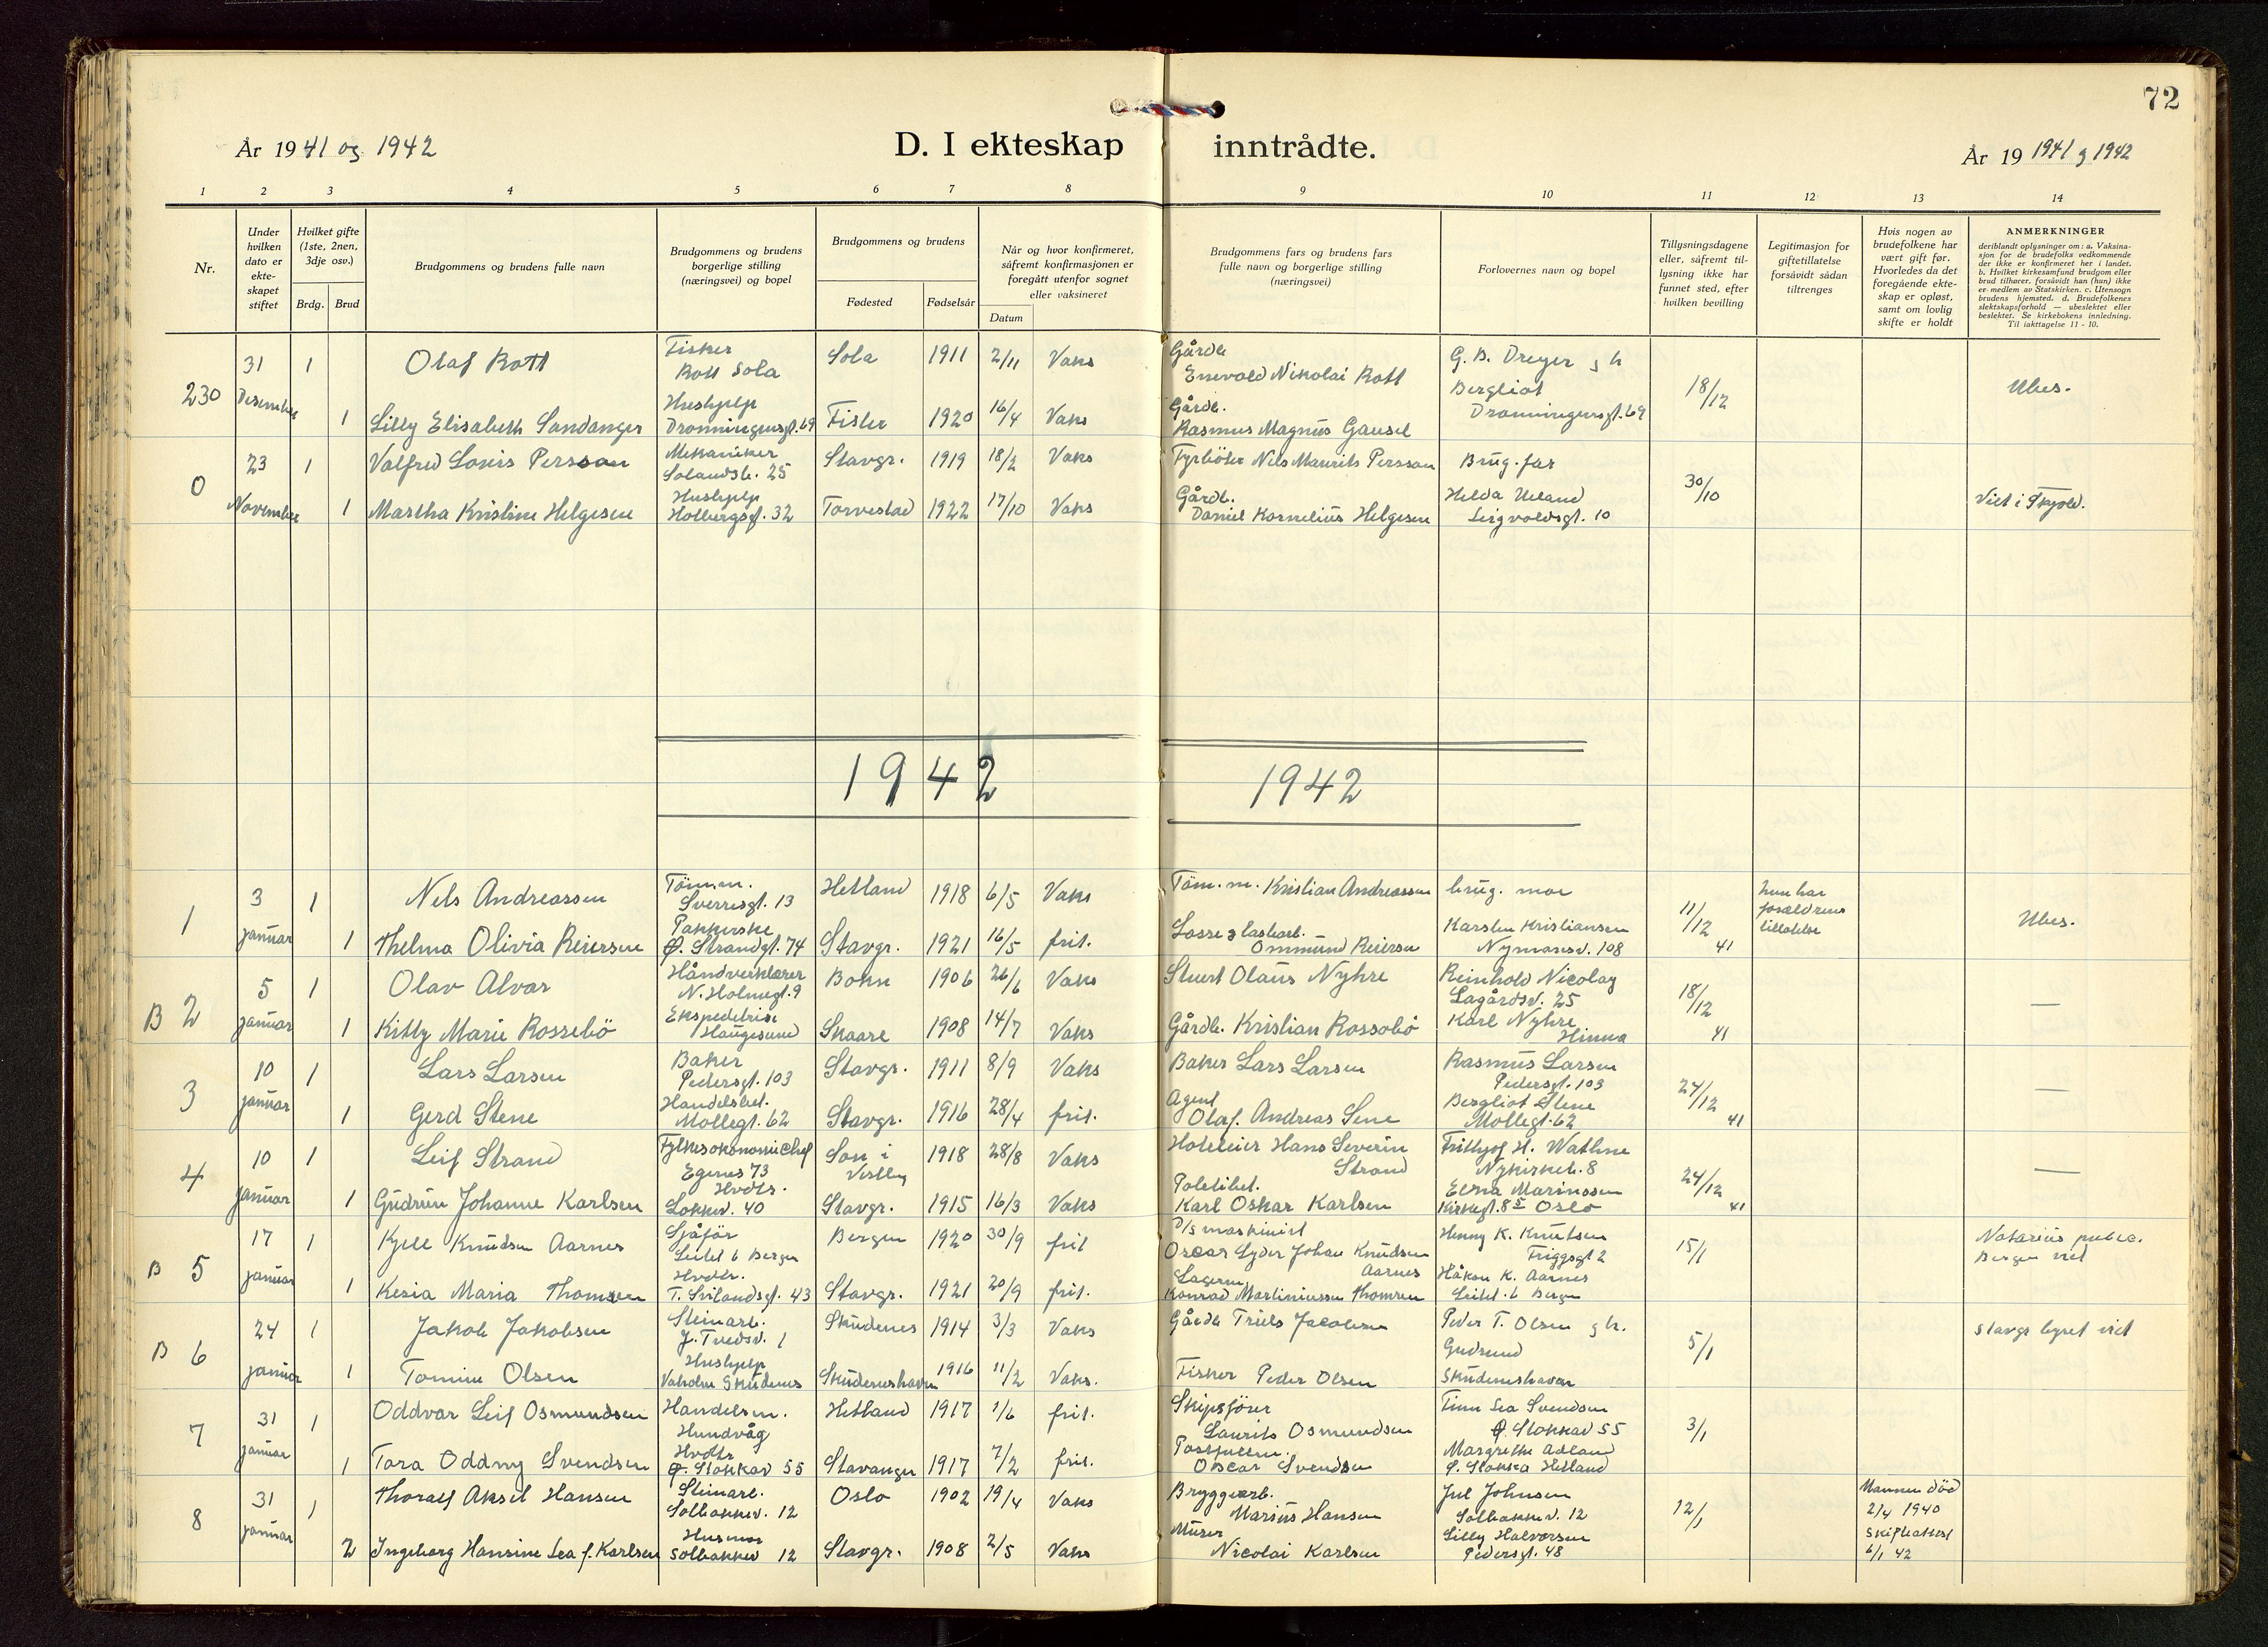 72
År 1941 og 1942
D. I ekteskap inntrådte.
År 19 1941 og 1942
1 2 3 4 5 6 7 8 9 10 11 12 13 14
Nr.
Under hvilken dato er ekte-skapet stiftet
Hvilket gifte (1ste, 2nen, 3dje osv.)
Brdg. Brud
Brudgommens og brudens fulle navn
Brudgommens og brudens borgerlige stilling (næringsvei) og bopel
Brudgommens og brudens
Fødested Fødselsår
Når og hvor konfirmeret, såfremt konfirmasjonen er foregått utenfor sognet eller vaksineret
Datum
Brudgommens fars og brudens fars fulle navn og borgerlige stilling (næringsvei)
Forlovernes navn og bopel
Tillysningsdagene eller, såfremt til-lysning ikke har funnet sted, efter hvilken bevilling
Legitimasjon for giftetillatelse forsåvidt sådan tiltrenges
Hvis nogen av brudefolkene har vært gift før. Hvorledes da det foregående ekte-skap er opløst, samt om lovlig skifte er holdt
ANMERKNINGER
deriblandt oplysninger om: a. Vaksina-sjon for de brudefolks vedkommende der ikke er konfirmeret her i landet. b. Hvilket kirkesamfund brudgom eller brud tilhører, forsåvidt han (hun) ikke er medlem av Statskirken. c. Utensogn brudens hjemsted. d. Brudefolkenes slektskapsforhold — ubeslektet eller beslektet. Se kirkebokens innledning. Til iakttagelse 11 - 10.
230 31 Desember 1 Olaf Rott Fisker Rott Sola Sola 1911 2/11 Vaks Gårdb. Enevald Nikolai Rott G. B. Dreyer g h Bergliot Dronningensgt. 69 18/12 Ubes.
1 Lilly Elisabeth Sandanger Hushjelp Dronningensgt. 69 Fister 1920 16/4 Vaks Gårdb. Rasmus Magnus Gausel
0 23 November 1 Valfred Louis Persson Mekaniker Solandsb. 25 Stavgr. 1919 18/2 Vaks Fyrböter Nels Maurits Persson Brug. far 30/10 Viet i Skjold.
1 Martha Kristine Helgesen Hushjelp Holbergsgt. 32 Torvestad 1922 17/10 Vaks Gårdb. Daniel Kornelius Helgesen Helda Ueland Seigvaldsgt. 10
1942 1942
1 3 januar 1 Nels Andreassen Tömm. Sverresgt. 13 Hetland 1918 6/5 Vaks Töm. m. Kristian Andreassen brug. mor 11/12 41 hun har foreldrens tillatelse Ubes.
1 Thelma Olivia Reiersen Pakkerske Ø. Strandgt. 74 Stavgr. 1921 16/5 frit. Losse g lastearb. Ommund Reiersen Karsten Kristiansen Nymansv. 108
B 2 5 januar 1 Olav Alvar Håndverklærer N. Holmegt. 9 Bokn 1906 26/6 Vaks Stuert Olaus Nyhre Reinhold Nicolay Lagårdsv. 25 18/12 41 —
1 Kitty Marie Rossebö Ekspeditrise Haugesund Skaare 1908 14/7 Vaks Gårdb. Kristian Rossebö Karl Nyhre Hinna
3 10 januar 1 Lars Larsen Baker Pedersgt. 103 Stavgr. 1911 8/9 Vaks Baker Lars Larsen Rasmus Larsen Pedersgt. 103 24/12 41 —
1 Gerd Stene Handelsbet. Möllegt. 62 Stavgr. 1916 28/4 frit. Agent Olaf. Andreas Sene Bergliot Stene Möllegt. 62
4 10 januar 1 Leif Strand Fylkesökonomichef Egenes 73 Son i Vestby 1918 28/8 Vaks Hoteleier Hans Severin Strand Frithjof H. Wathne Nykirkeb. 8 24/12 41 —
1 Gudrun Johanne Karlsen Hvdtr. Lokkev. 40 Stavgr. 1915 16/3 Vaks Politibet. Karl Oskar Karlsen Edna Marinssen Kirkegt. 8 5 Oslo
B 5 17 januar 1 Kjell Knudsen Aarnes Sjåför Leitet 6 Bergen Bergen 1920 30/9 frit D/s maskinist Oscar Lyder Johan Knudsen Aarnes Henny K. Knutsen Friggsgt 2 15/1 Notarius public. Bergen viet
1 Kesia Maria Thomsen Hvdtr. T. Svilandsgt. 43 Stavgr. 1921 20/9 frit. Lagerm. Konrad Martiniussen Thomsen Håkon K. Aarnes Leitet 6 Bergen
B 6 24 januar 1 Jakob Jakobsen Steinarb. J. Tvedtsv. 1 Skudenes 1914 3/3 Vaks Gårdb Truls Jacobsen Peder T. Olsen g h. Gudrund Skudeneshavn 5/1 Stavgr byret viet
1 Tomine Olsen Hushjelp Vaholm Skudenes Skudeneshavn 1916 11/2 Vaks. Fisker Peder Olsen
7 31 januar 1 Oddvar Leif Osmundsen Handelsm. Hundvåg Hetland 1917 1/6 frit. Skipsförer Laurits Osmundsen Finn Lea Svendsen Ø. Stokkav 55 3/1
1 Tora Oddny Svendsen Hvdtr Ø. Stokkav 55 Stavanger 1917 7/2 frit. Postfullm. Oscar Svendsen Margrethe Adland Ø. Stokka Hetland
8 31 januar 1 Thoralf Aksel Hansen Steinarb. Solbakkev. 12 Oslo 1902 19/4 Vaks Bryggearb. Marius Hansen Jul Johnsen Solbakkev. 12 12/1 Mannen död 2/4 1940 Skifteattest 6/1 42
2 Ingeborg Hansine Lea f. Karlsen Husmor Solbakkev 12 Stavgr. 1908 2/5 Vaks Murer Nicolai Karlsen Lilly Halvorsen Pedersgt. 48